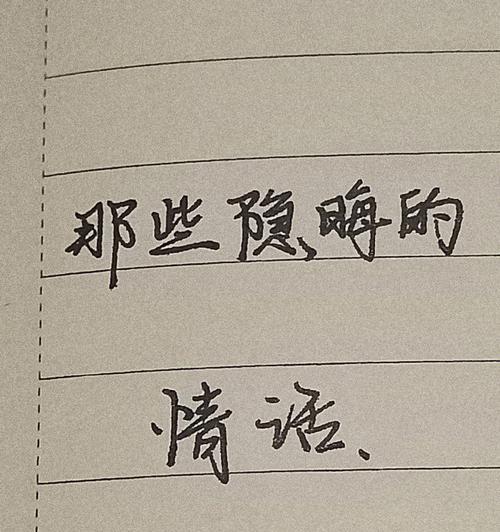 那些隐晦的
情话、